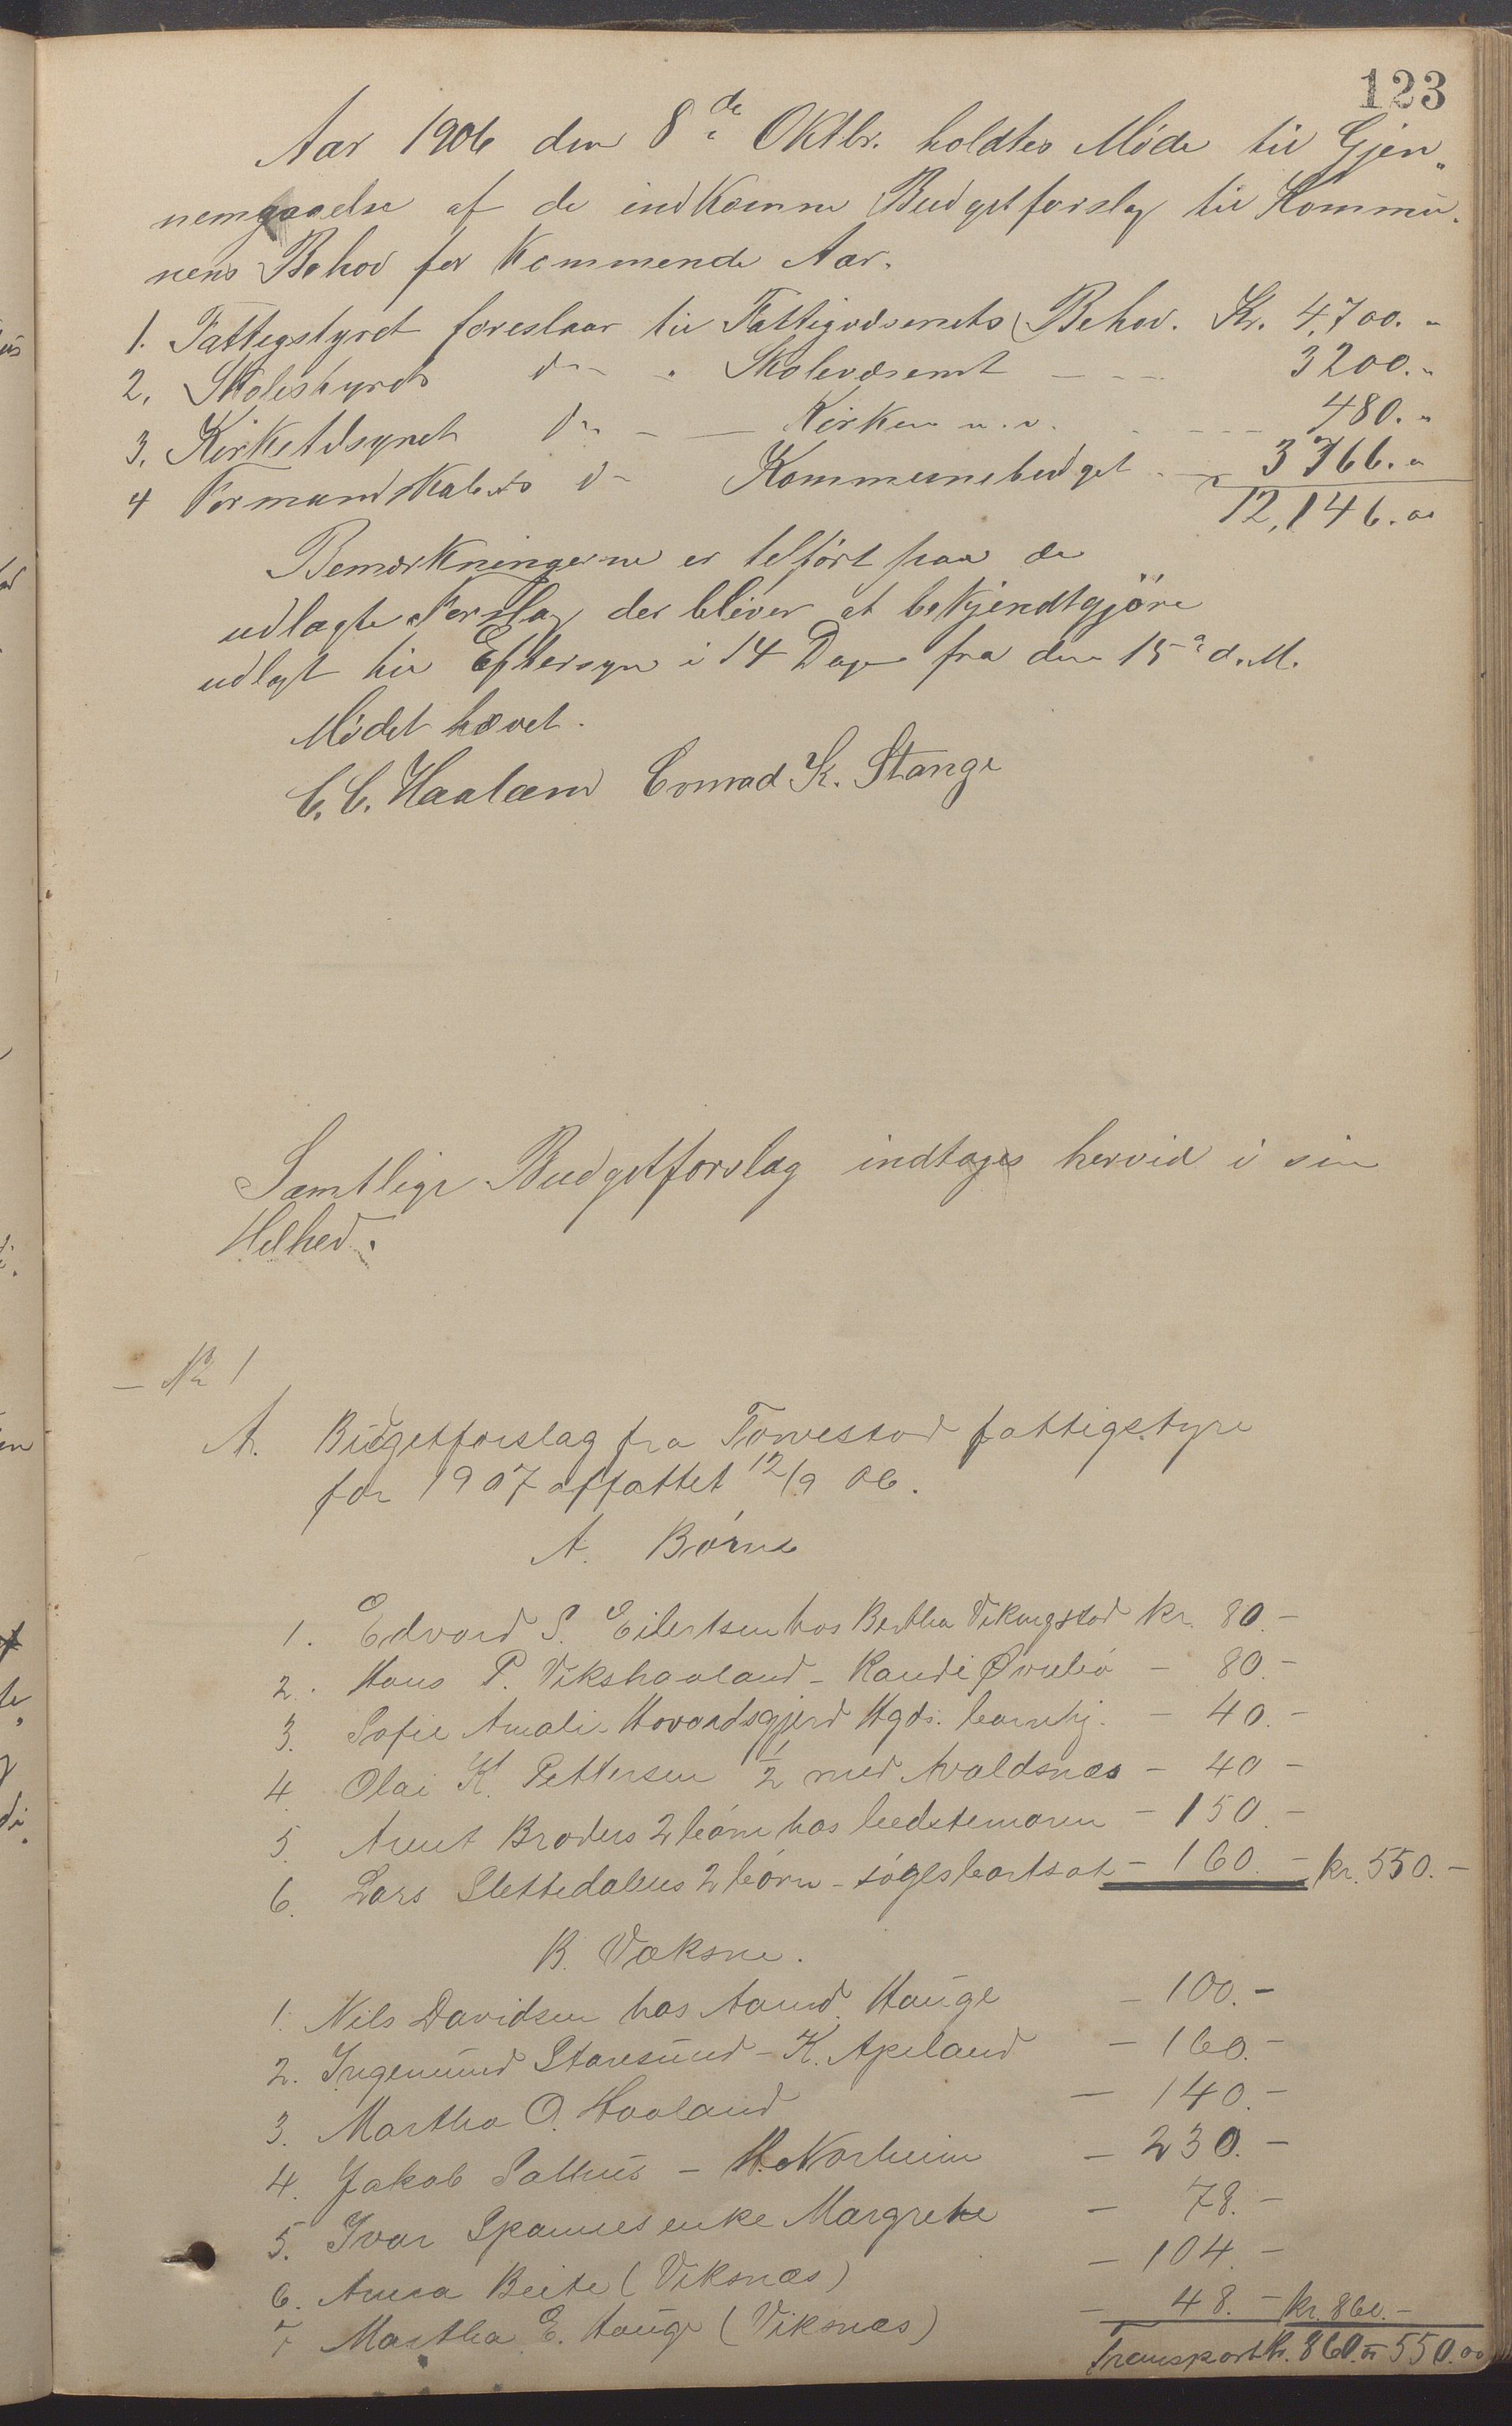 123
Aar 1906 den 8de Oktbr. holdtes Møde til Gjen-
nemgaaelse af de indkomne Budgetforslag til Kommu-
nens Behov for kommende Aar.
1. Fattigstyret foreslaar til Fattigvæsenets Behov. Kr. 4,700. "
2. Skolestyrets do " Skolevæsenet — — 3200. "
3. Kirketilsynets do — — Kirken m. v. - - - 480. "
4 Formandskabets do Kommunebudget - - 3766. "
12,146. 00
Bemærkningerne er tilført paa de
udlagte Forslag der bliver at bekjendtgjøre
udlagt til Eftersyn i 14 Dage fra den 15de d. M.
Mødet hævet.
C. C. Haaland Conrad K. Stange
Samtlige Budgetforslag indtages hervid i sin
Helhed.
— No 1
A. Budgetforslag fra Torvestad fattigstyre
for 1907 affattet 12/9 06.
A. Børn
1. Edvard S. Eilertsen hos Bertha Vikingstad kr. 80.-
2. Hans P. Vikshaaland - Randi Øvrebø - 80.-
3. Sofie Amalie Hovardsgjerd Hgds. barnehj. - 40.-
4. Olai K. Pettersen 1/2 med Avaldsnæs - 40 -
5. Arent Broders 2 børn hos bedstemoren - 150.-
6. Lars Slettedals 2 børn - søges bortsat - 160.- kr. 550.-
B. Voksne.
1. Nils Davidsen hos Aamd. Hauge - 100.-
2. Ingemund Staresund - K. Apeland - 160.-
3. Martha O. Haaland — 140.-
4. Jakob Salhus - H. Norheim - 230.-
5. Ivar Spannes enke Margrete - 78.-
6. Anna Beite (Viksnæs) - 104.-
7 Martha E. Hauge (Viksnæs) - 48.- kr. 860.-
Transport kr. 860.00 550.00